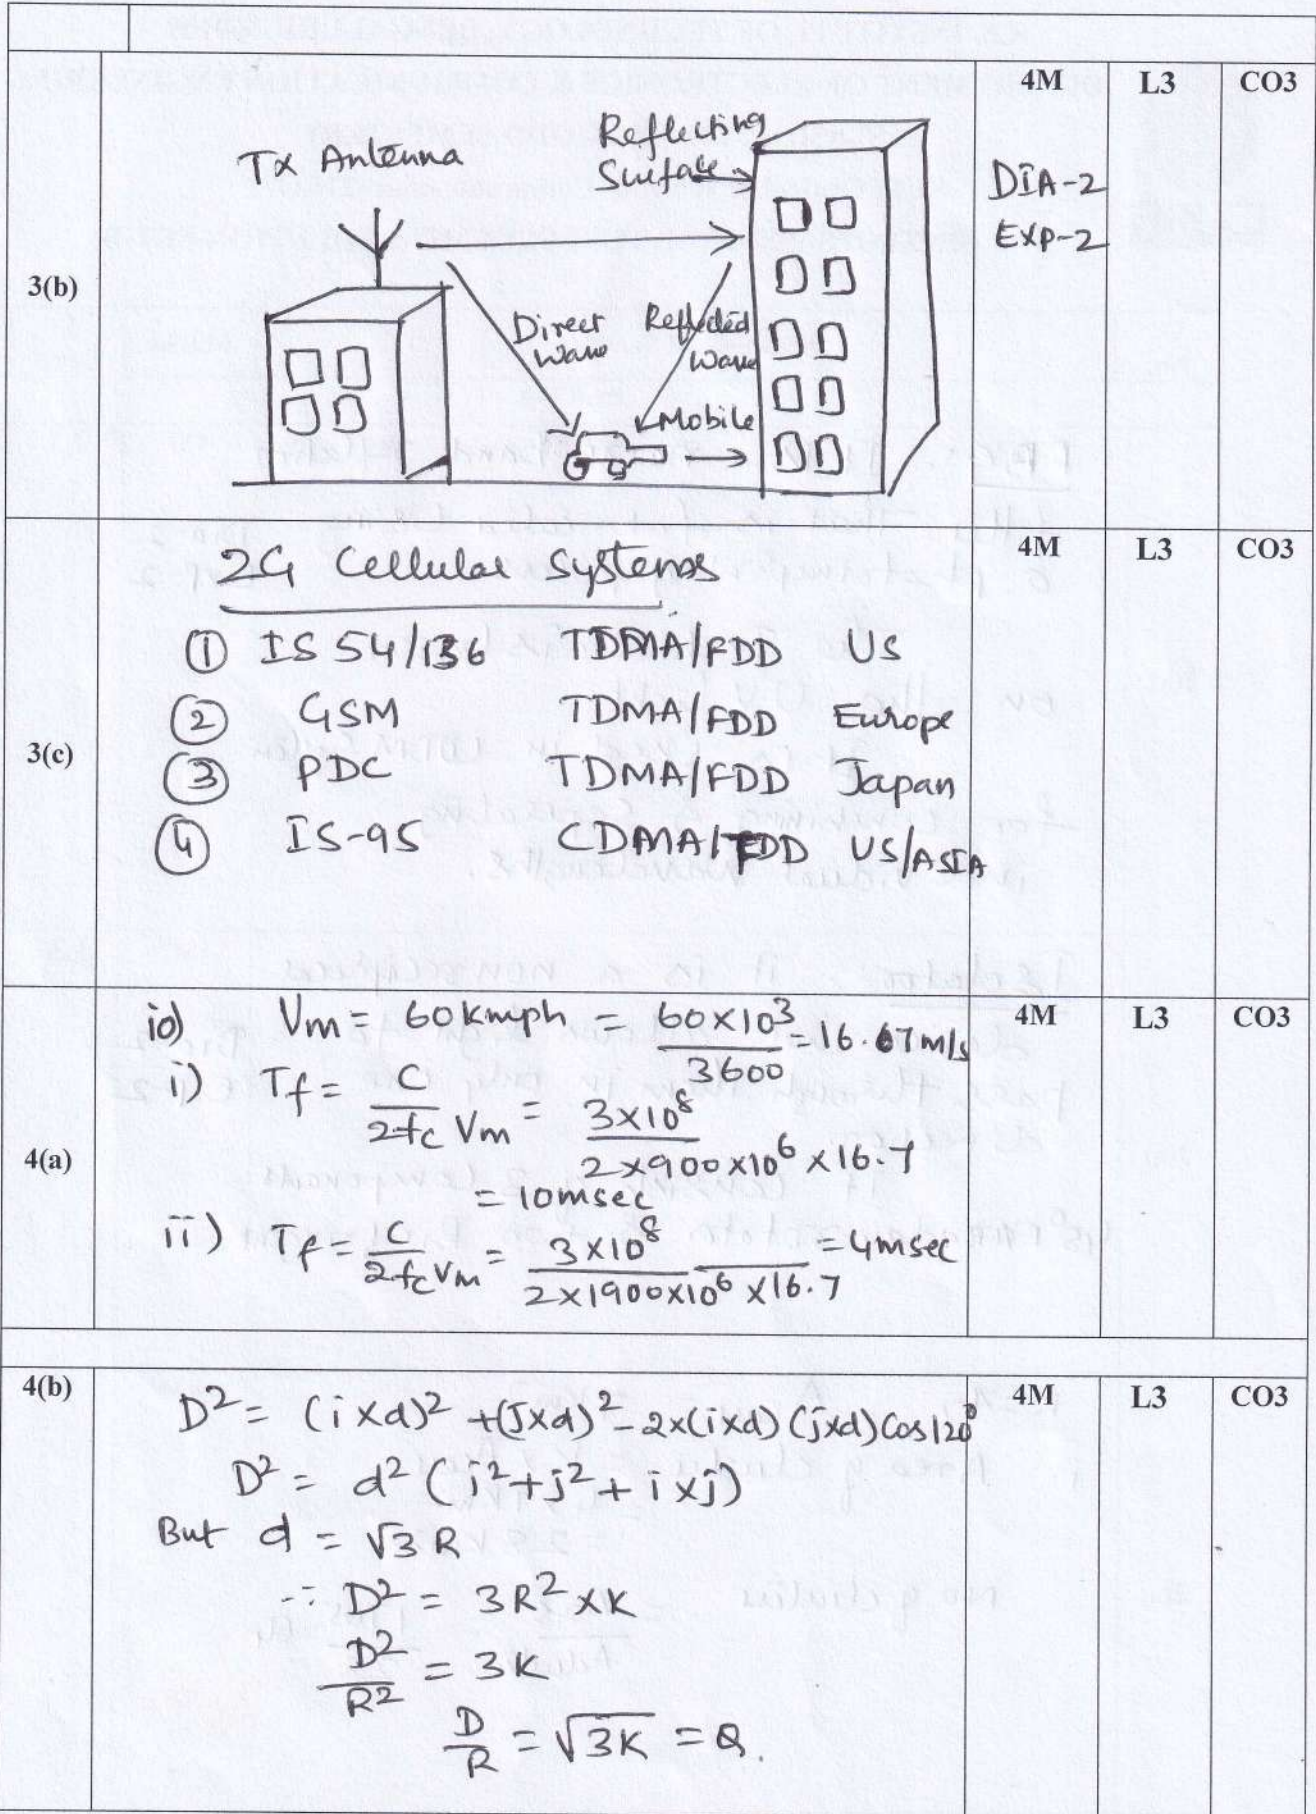 4M L3 CO3
3(b)
Tx Antenna
Reflecting
Surface
Direct
Wave
Reflected
Wave
Mobile
DIA-2
EXP-2
4M L3 CO3
3(c)
2G Cellular Systems
① IS 54/136 TDMA/FDD US
② GSM TDMA/FDD Europe
③ PDC TDMA/FDD Japan
④ IS-95 CDMA/FDD US/ASIA
4M L3 CO3
4(a)
Vm = 60 Kmph = 60×10³/3600 = 16.67 m/s
i) Tf = C/2fc Vm = 3×10⁸/2×900×10⁶×16.7
= 10msec
ii) Tf = C/2fc Vm = 3×10⁸/2×1900×10⁶×16.7 = 4msec
4(b) 4M L3 CO3
D² = (i×d)² + (j×d)² - 2×(i×d)(j×d)Cos120°
D² = d² (i²+j²+i×j)
But d = √3 R
∴ D² = 3R²×K
D²/R² = 3K
D/R = √3K = Q.